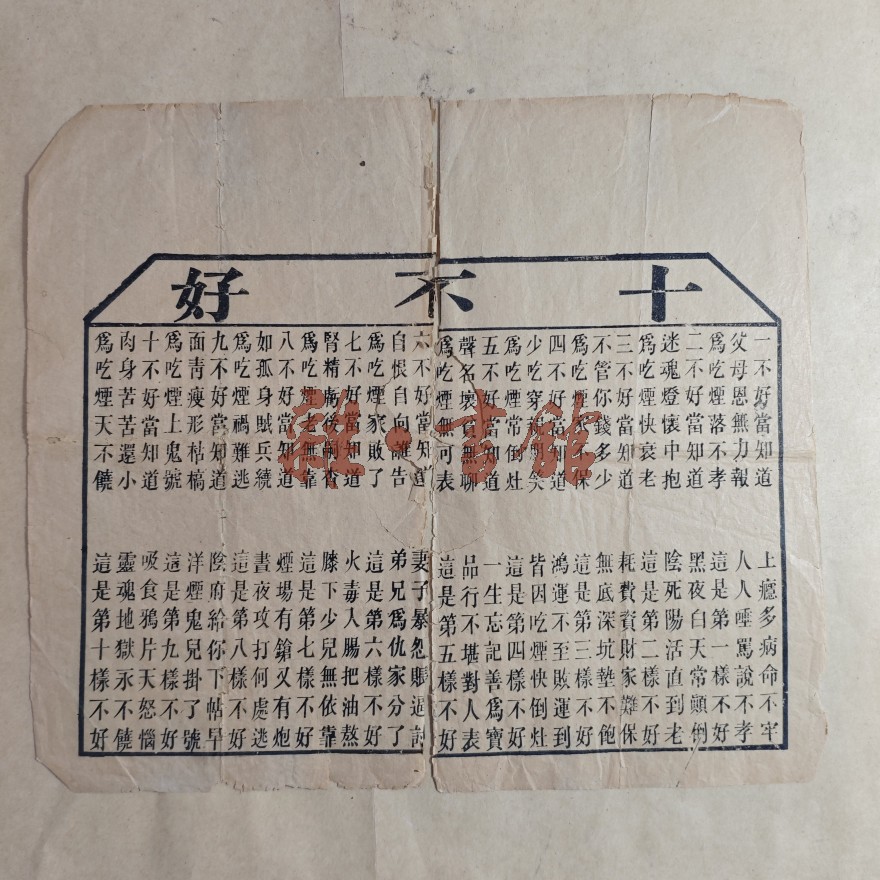 十不好
一不好當知道 上癮多病命不牢
父母恩無力報 人人唾罵說不孝
爲吃煙落不孝 這是第一樣不好
二不好當知道 黑夜白天常顛倒
迷魂燈懷中抱 陰死陽活直到老
爲吃煙快衰老 這是第二樣不好
三不好當知道 耗費資財家難保
不管你錢多少 無底深坑墊不飽
爲吃煙家不保 這是第三樣不好
四不好當知道 鴻運不至敗運到
少吃穿親朋笑 皆因吃煙快倒灶
爲吃煙常倒灶 這是第四樣不好
五不好當知道 一生忘記善爲寶
聲名壞貧無聊 品行不堪對人表
爲吃煙無可表 這是第五樣不好
六不好當知道 妻子暴怨賬逼討
自恨自向誰告 弟兄爲仇家分了
爲吃煙家敗了 這是第六樣不好
七不好當知道 火毒入腸把油熬
腎精虧後嗣杳 膝下少兒無依靠
爲吃煙老無靠 這是第七樣不好
八不好當知道 煙場有鎗又有炮
如孤身賊兵繞 晝夜攻打何處逃
爲吃煙禍難逃 這是第八樣不好
九不好當知道 陰府給你下帖早
面靑瘦形枯槁 洋煙鬼兒掛了號
爲吃煙上鬼號 這是第九樣不好
十不好當知道 吸食鴉片天怒惱
肉身苦苦還小 靈魂地獄永不饒
爲吃煙天不饒 這是第十樣不好
雜·書館